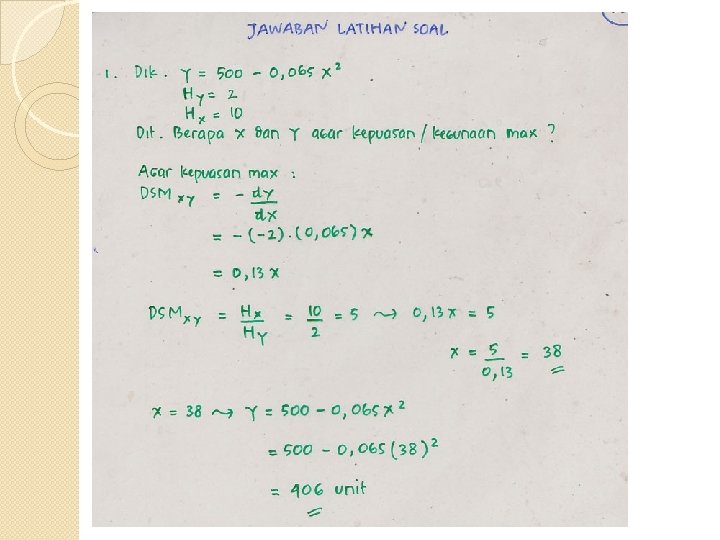 JAWABAN LATIHAN SOAL
1. Dik. Y = 500 - 0,065 X²
Hy = 2
Hx = 10
Dit. Berapa X dan Y agar kepuasan / kegunaan max ?
Agar kepuasan max :
DSM xy = - dy/dx
= -(-2).(0,065)x
= 0,13 x
DSMxy = Hx/Hy = 10/2 = 5 ⤳ 0,13x = 5
x = 5/0,13 = 38
x = 38 ⤳ Y = 500 - 0,065 x²
= 500 - 0,065 (38)²
= 406 unit